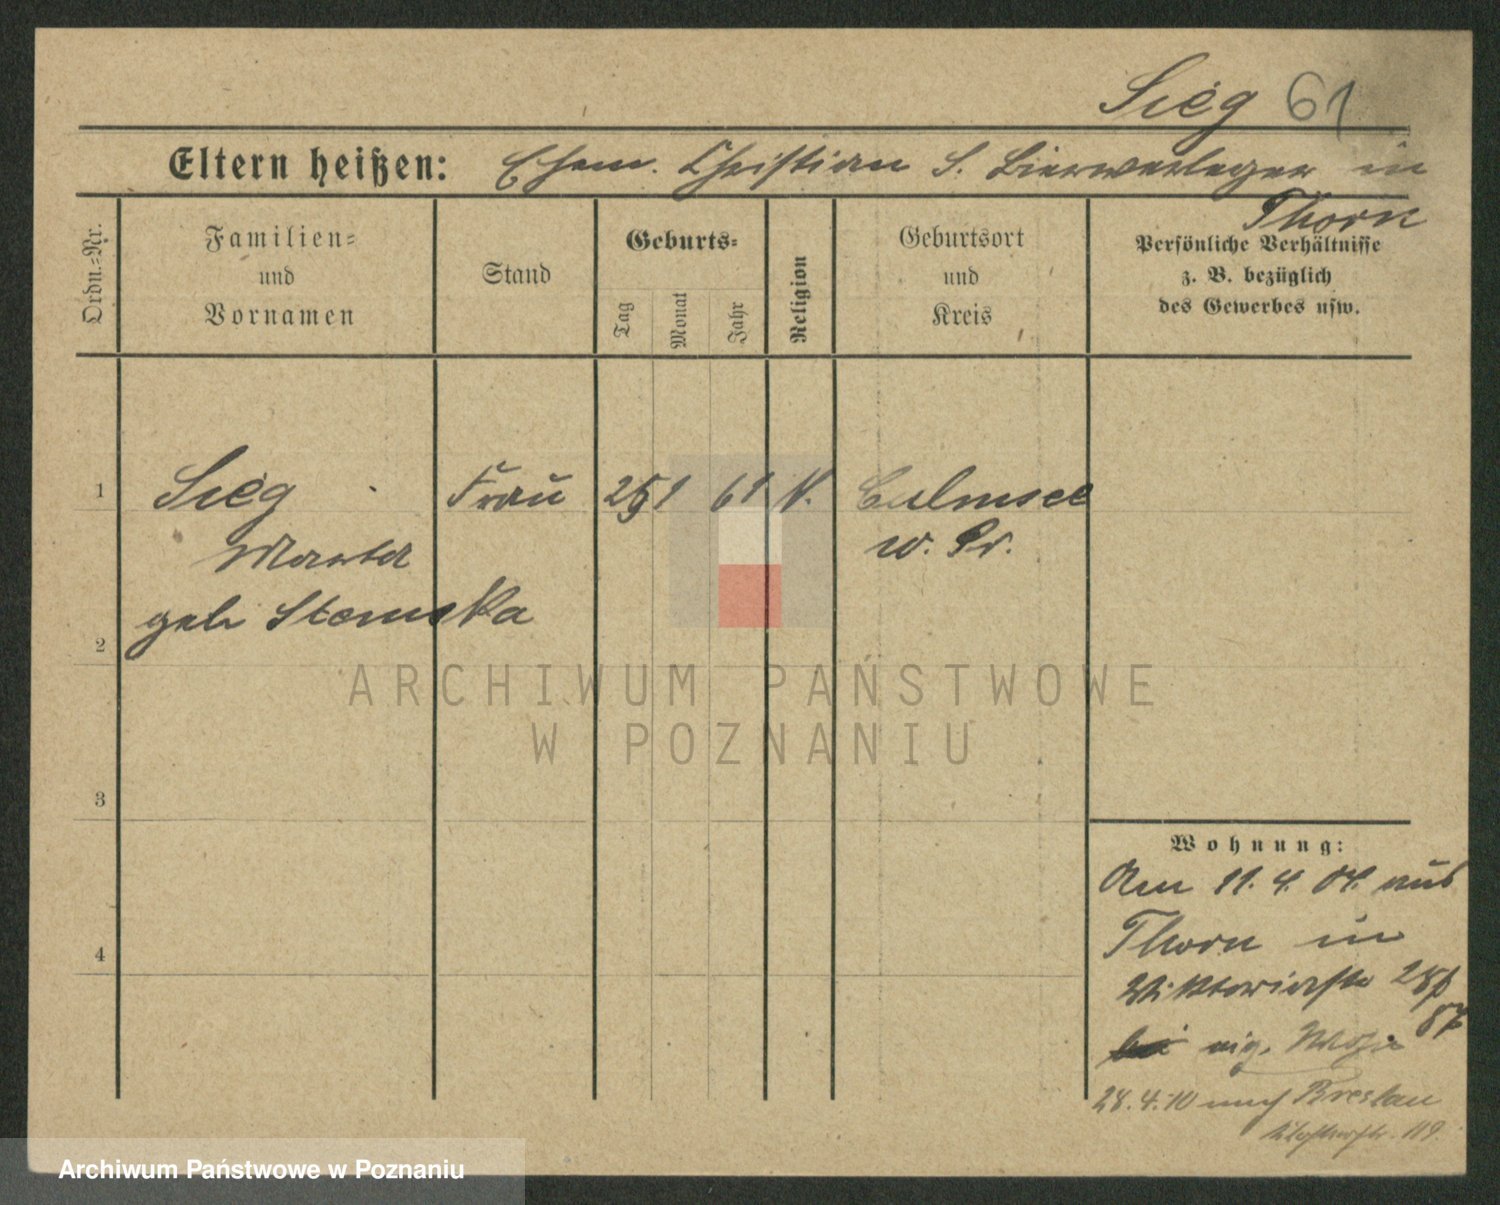 Sieg 61
Eltern heißen: Ehem. Christian S. Bierverleger in
Thorn
Ordn.-Nr.
Familien-
und
Vornamen
Stand
Geburts-
Tag
Monat
Jahr
Religion
Geburtsort
und
Kreis
Persönliche Verhältnisse
z. B. bezüglich
des Gewerbes usw.
1
Sieg Frau 25 9 61 K. Culmsee
Martha w. Pr.
geb Stemska
2
ARCHIWUM PAŃSTWOWE
W POZNANIU
3
Wohnung:
Am 11. 4. 04. aus
4
Thorn in
Viktoriastr 28
87
bei eig.
28.4.10 nach Breslau
119.
Archiwum Państwowe w Poznaniu